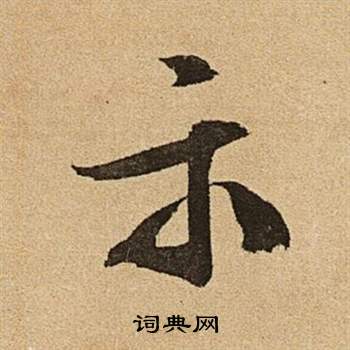 示
词典网